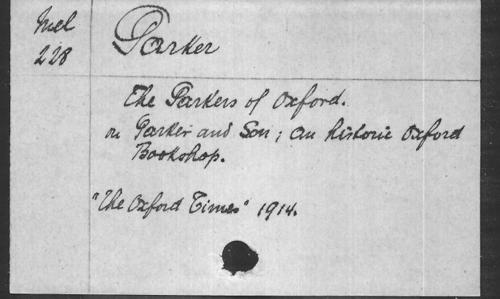 Mel
228
Parker
The Parkers of Oxford.
or Parker and Son; an historic Oxford
Bookshop.
"The Oxford Times" 1914.